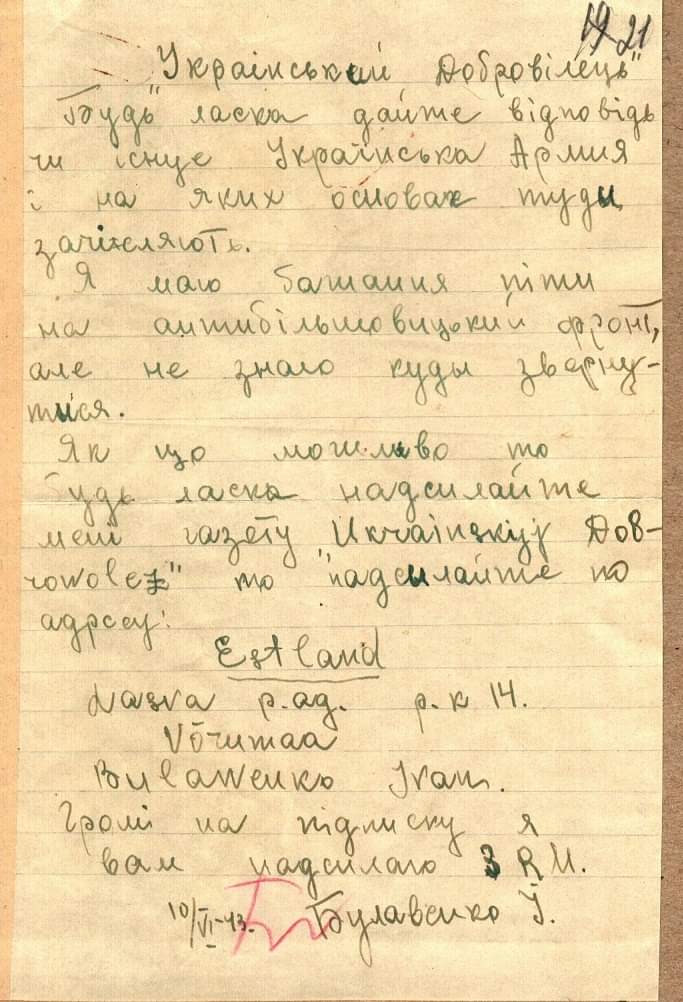 19 21
"Український Добровілець"
Будь ласка дайте відповідь
чи існує Українська Армия
і на яких основах туды
зачісляють.
Я маю бажання піти
на антибільшовицький фронт,
але не знаю куды звернут-
тыся.
Як щоможлыво то
будь ласка надсилайте
мені газету "Ukrainskij Dob-
rowolez" то надсылайте по
адресу:
Estland
Lasva p.ад. p. к 14.
Võrumaa
Bulawenko Ivan.
Гроші на підписку я
вам надсилаю 3 RM.
10/VI-43. Булавенко І.